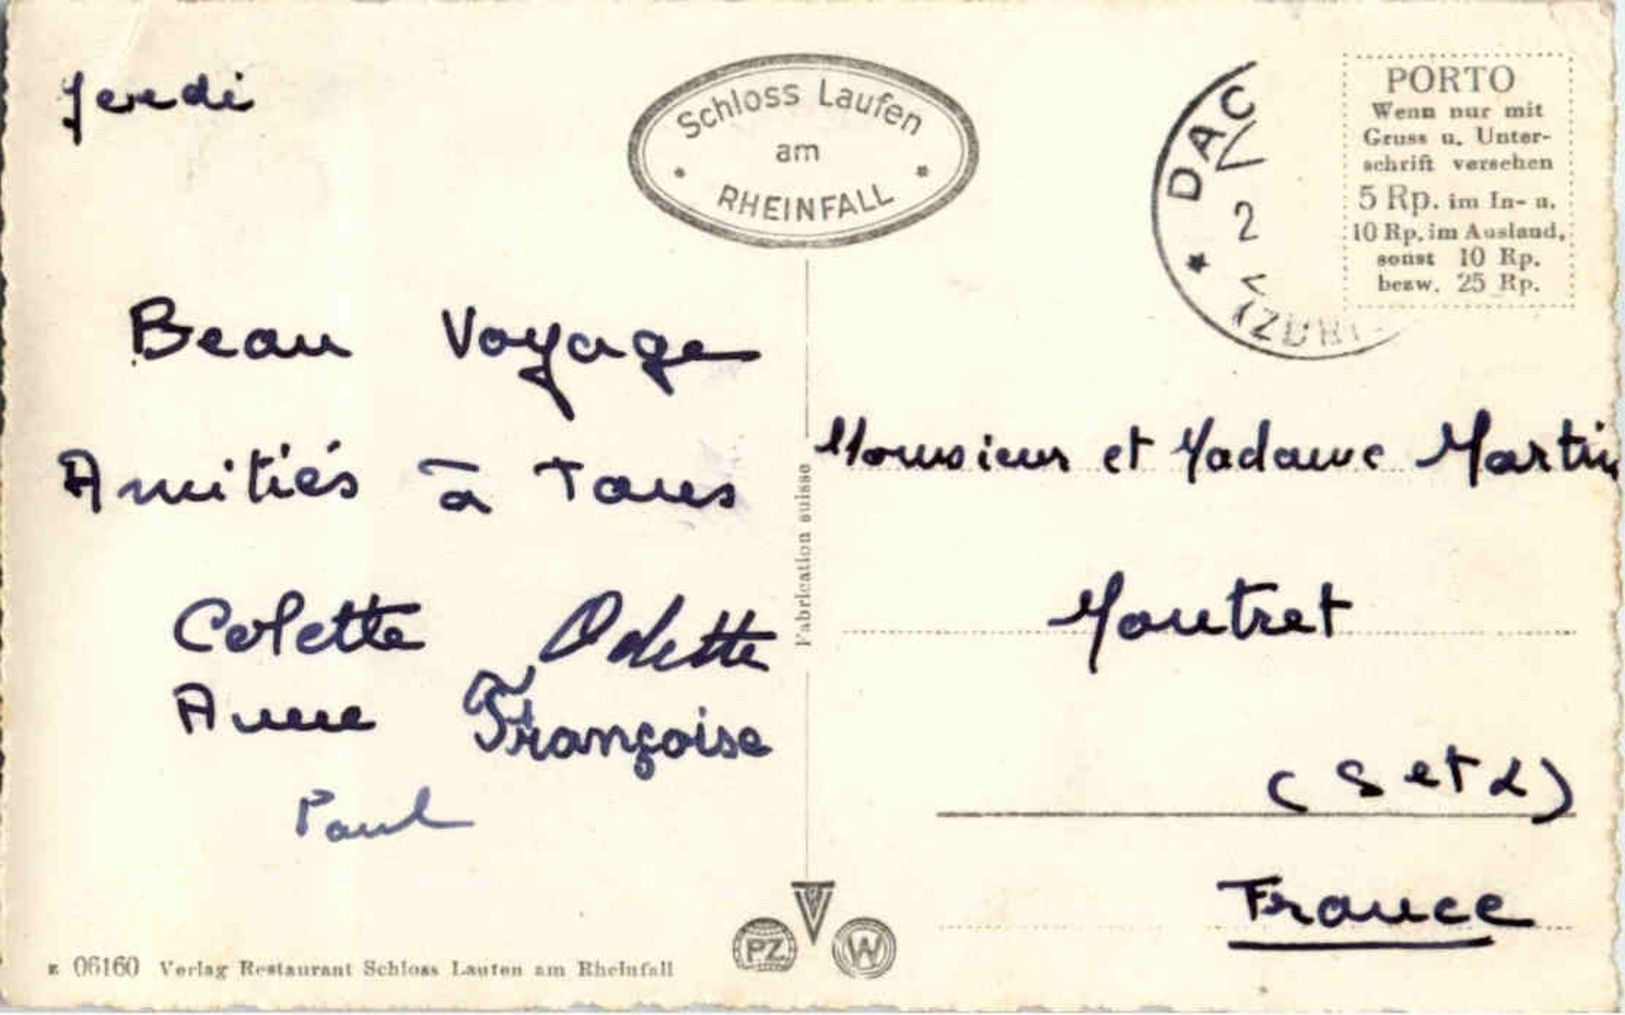 Jeudi
Beau Voyage
Amitiés à Tous
Colette Odette
Anne Françoise
Paul
Schloss Laufen
am
RHEINFALL
DAC
2
(ZÜRI
PORTO
Wenn nur mit
Gruss u. Unter-
schrift versehen
5 Rp. im In- u.
10 Rp. im Ausland,
sonst 10 Rp.
bezw. 25 Rp.
Monsieur et Madame Martin
Montret
(S et L)
France
Fabrication suisse
PZ
W
06160 Verlag Restaurant Schloss Laufen am Rheinfall